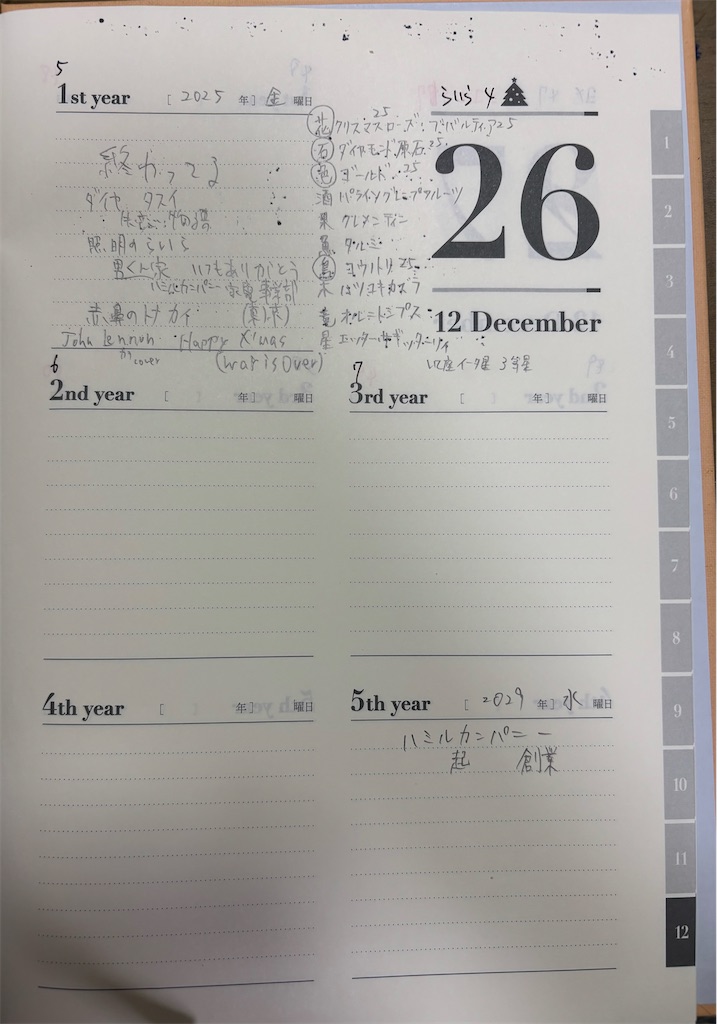 5
1st year [ 2025 年] 金 曜日
終わってる
ダイヤ タスイ
照明のらいら
男くん家 いつもありがとう
ハミルカンパニー 家電事学部
赤鼻のトナカイ (東京)
John Lennon Happy X'mas
cover (war is over)
花 クリスマスローズ・ブバルディア25
25
石 ダイヤモンド原石25
色 ゴールド 25
酒 パライソグレープフルーツ
果 クレメンティン
魚 タルミ
鳥 コウノトリ25
木
竜 オルニトミプス
星
座イータ星 3等星
らいら 4
26
12 December
6
2nd year [ 年] 曜日
7
3rd year [ 年] 曜日
4th year [ 年] 曜日
5th year [ 2029 年] 水 曜日
ハミルカンパニー
起 創業
1
2
3
4
5
6
7
8
9
10
11
12